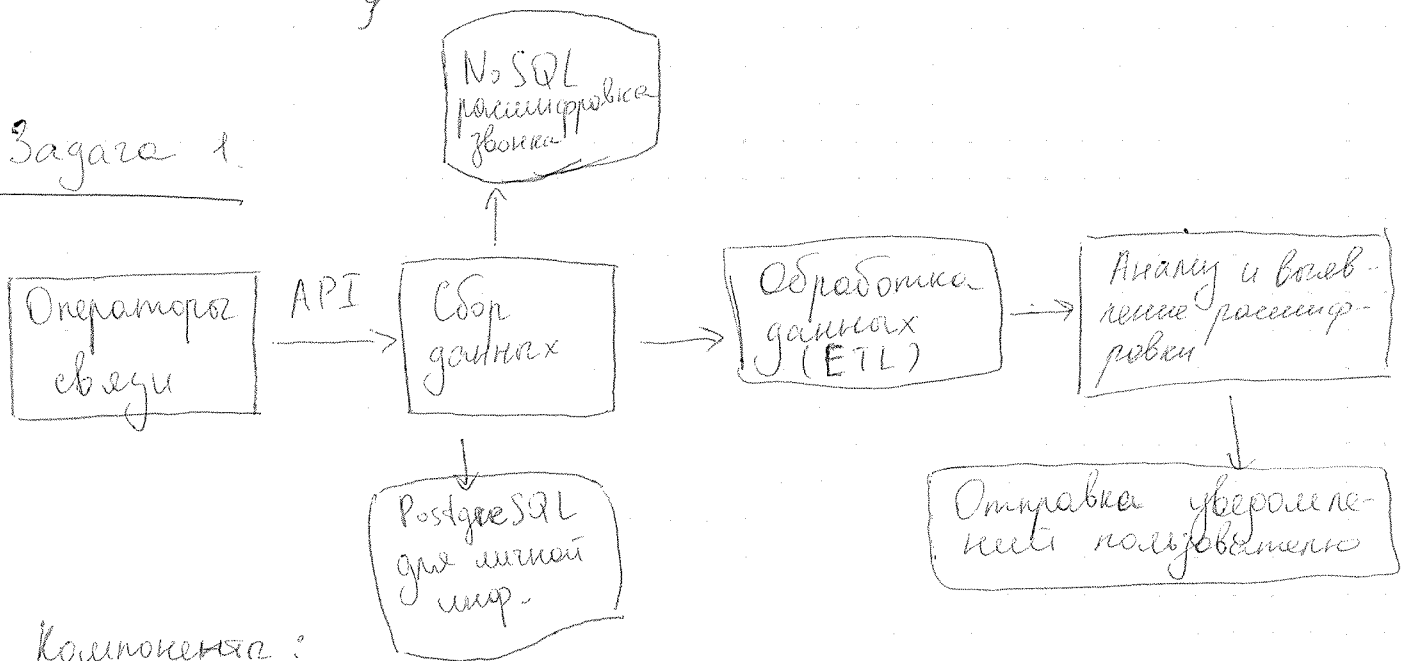 NoSQL
расшифровка
звонка
Задача 1.
Операторы
связи
API
Сбор
данных
Обработка
данных
(ETL)
Анализ и выяв-
ление расшиф-
ровки
PostgreSQL
для личной
инф.
Отправка уведомле-
ний пользователю
Компоненты: